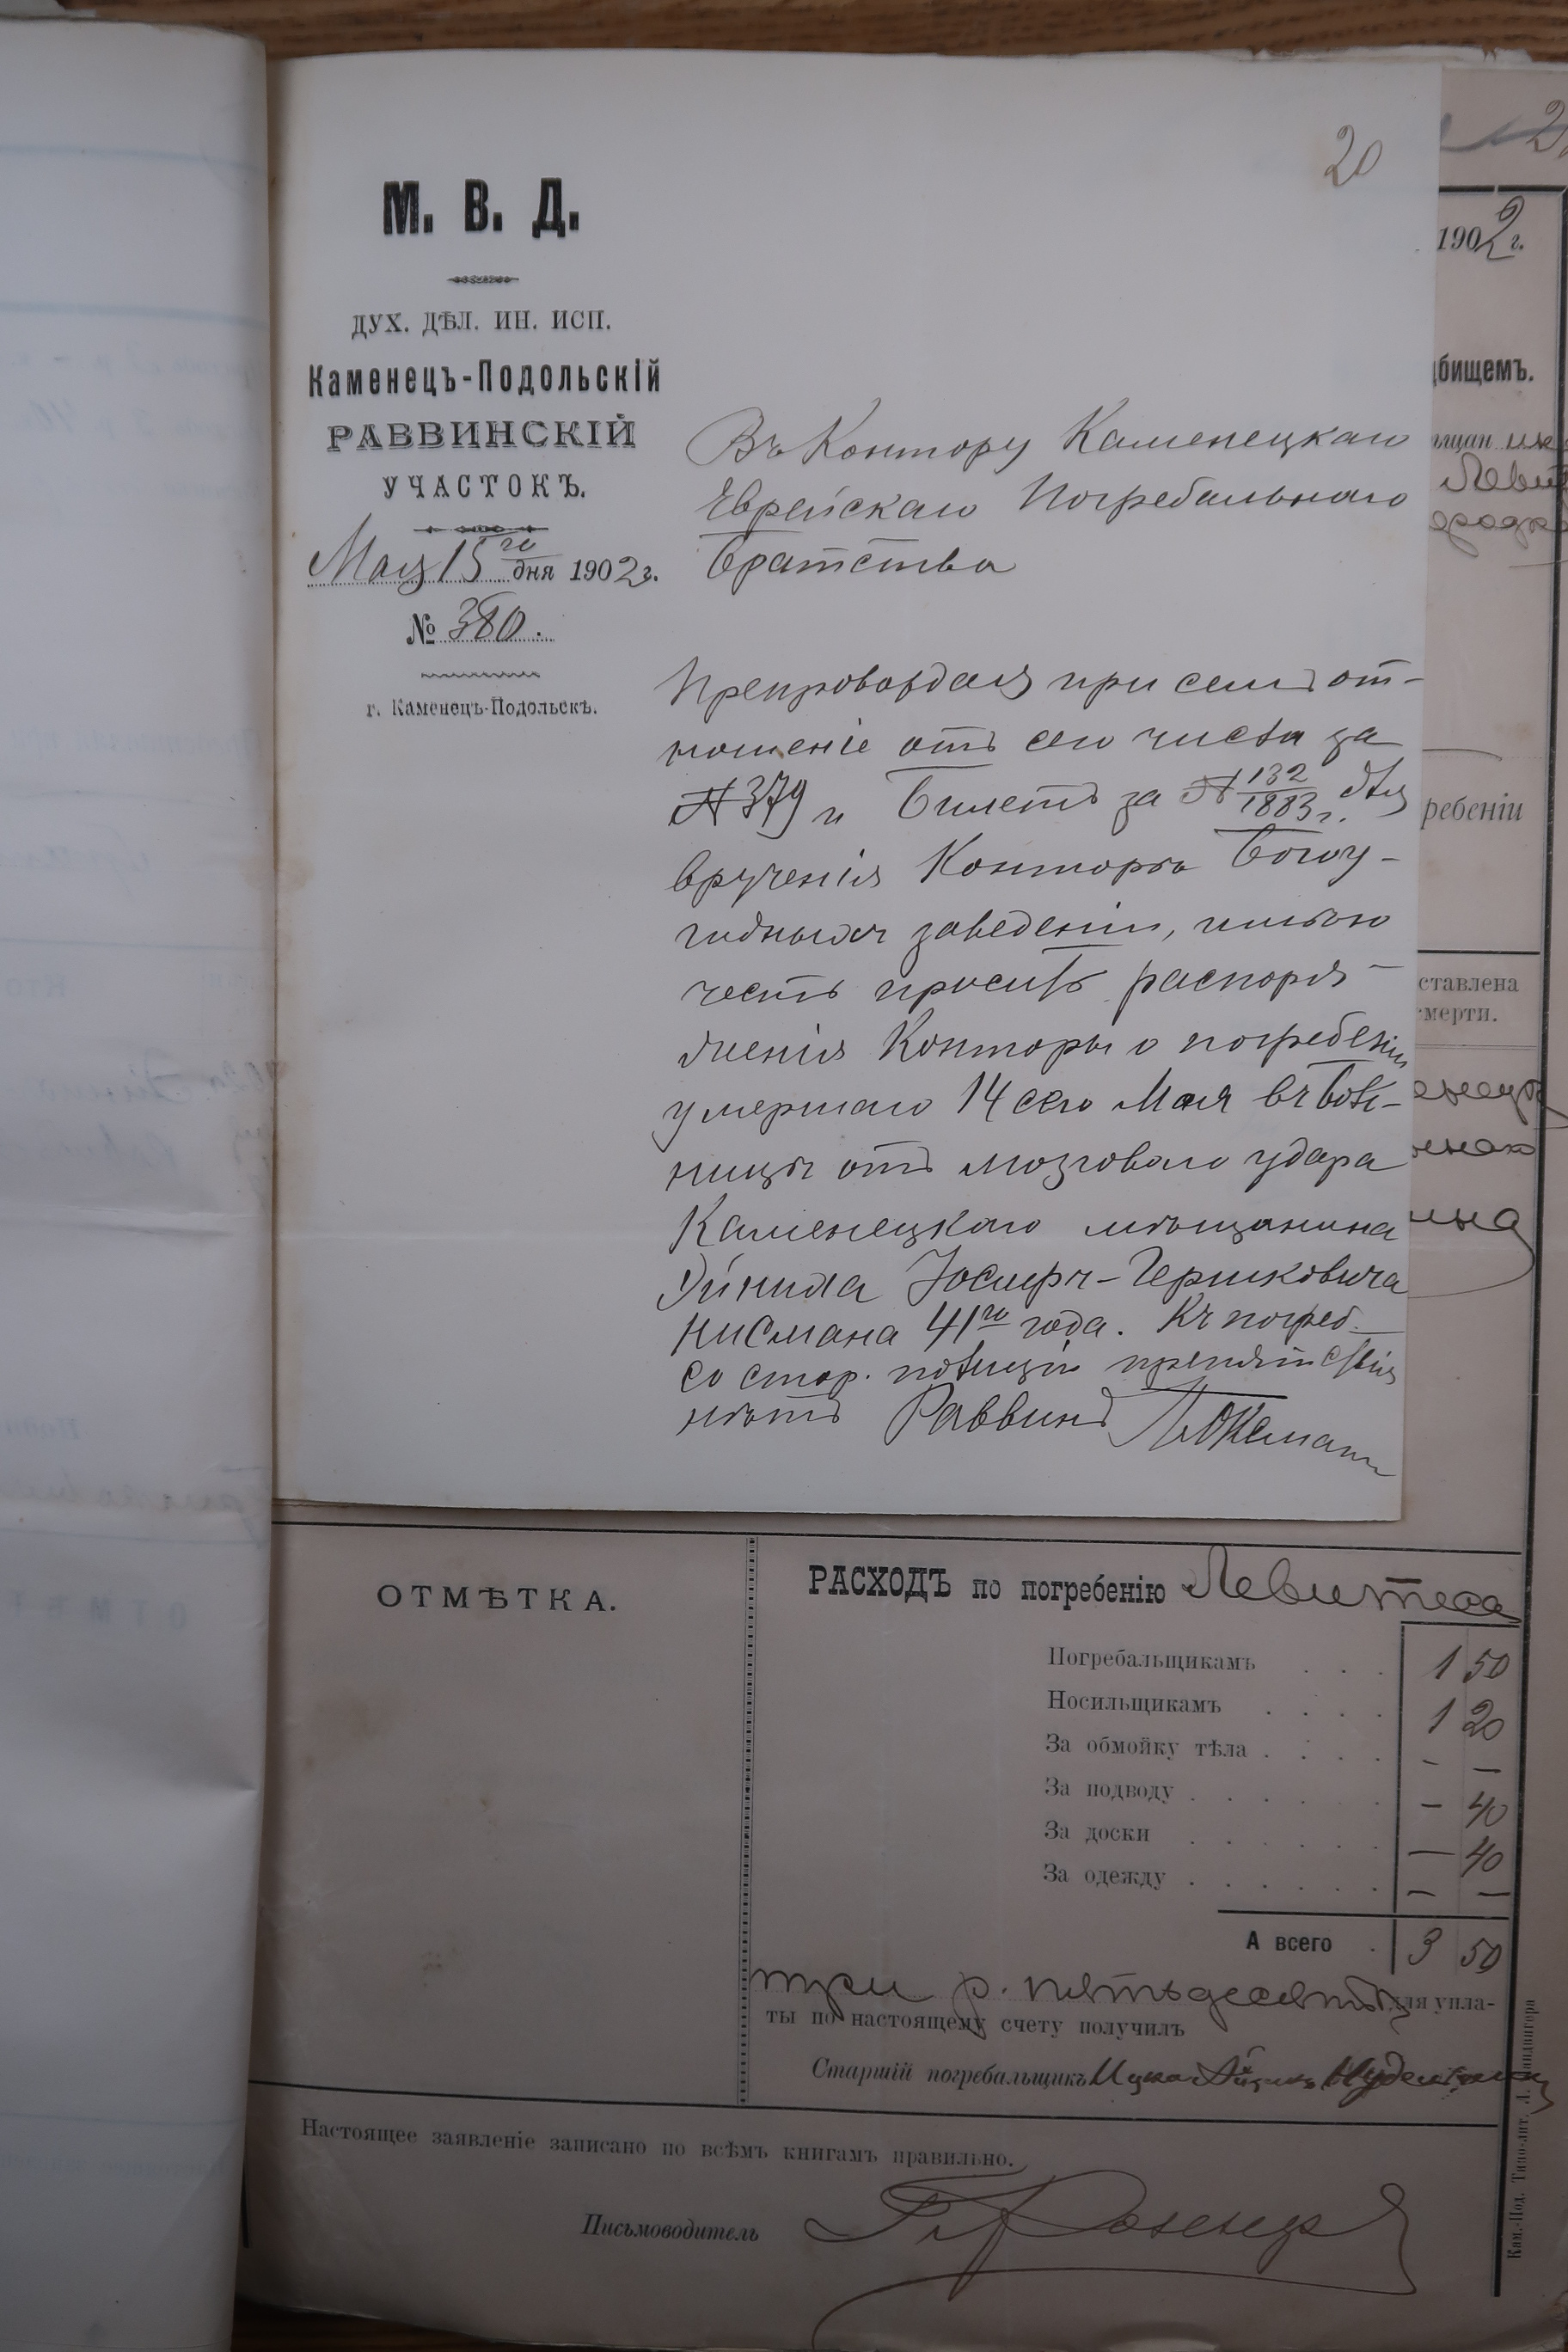 20
М. В. Д.
ДУХ. ДѢЛ. ИН. ИСП.
Каменецъ-Подольскій
РАВВИНСКІЙ
УЧАСТОКЪ.
Мая 15го дня 1902 г.
№ 380.
г. Каменецъ-Подольскъ.
Въ Контору Каменецкаго
Еврейскаго Погребальнаго
Братства
Препровождая при семъ от-
ношеніе отъ сего числа за
№ 379 и билетъ за № 132/1883 г. для
врученія Конторѣ Богоу-
годныхъ заведеній, имѣю
честь просить распоря-
женія Конторы о погребеніи
умершаго 14 сего Мая въ боль-
ницѣ отъ мозговаго удара
Каменецкаго мѣщанина
Іосифъ-Гершковича
Нисмана 41го года. Къ погреб.
со стор. полиціи препятствія
нѣтъ Раввинъ
2
1902 г.
дбищемъ.
щан
Леви
ребеніи
ставлена
смерти.
ОТМѢТКА.
РАСХОДЪ по погребенію Левитеса
Погребальщикамъ . . . 1 50
Носильщикамъ . . . . 1 20
За обмойку тѣла . . . . - -
За подводу . . . . . . - 40
За доски . . . . . . - 40
За одежду . . . . . . - -
А всего . 3 50
три р. пятьдесятъ для упла-
ты по настоящему счету получилъ
Старшій погребальщикъ Ицко
Настоящее заявленіе записано по всѣмъ книгамъ правильно.
Письмоводитель
Кам.-Под. Типо-лит. Л.